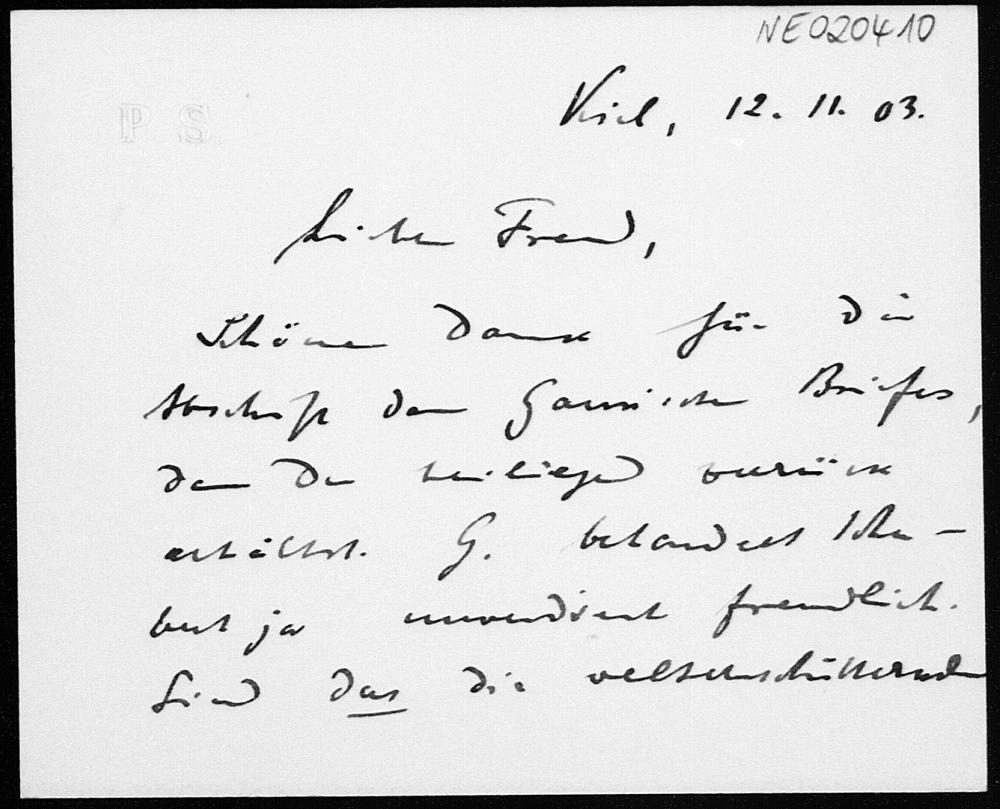 NE020410
P S
Kiel, 12. 11. 03.
Lieber Freund,
Schönen Dank für die
Abschrift des Briefes,
den Du beiliegend zurück
erhältst. G. behandelt Schu-
bert ja unverdient freundlich.
Sind das die welterschütternden